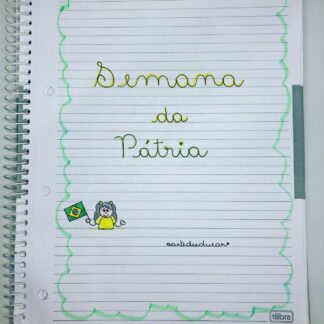 Semana
da
Pátria
@artedeeducari
tilibra